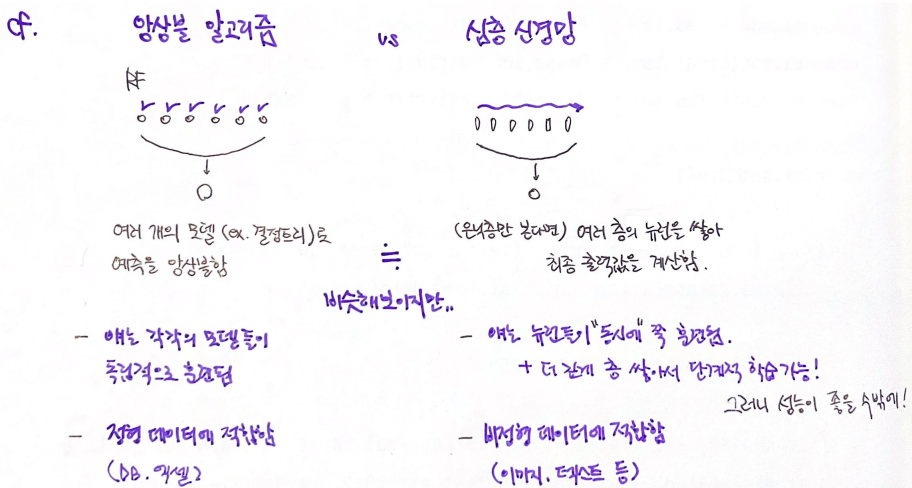 cf. 앙상블 알고리즘 vs 심층 신경망
RF
여러 개의 모델 (ex. 결정트리)로
예측을 앙상블함
(은닉층만 본다면) 여러 층의 뉴런을 쌓아
최종 출력값을 계산함.
≒
비슷해보이지만..
- 얘는 각각의 모델들이
독립적으로 훈련됨
- 얘는 뉴런들이 "동시에" 쭉 훈련됨.
+ 더 깊게 층 쌓아서 단계적 학습 가능!
그러니 성능이 좋을 수밖에!
- 정형 데이터에 적합함
(DB. 엑셀)
- 비정형 데이터에 적합함
(이미지. 텍스트 등)